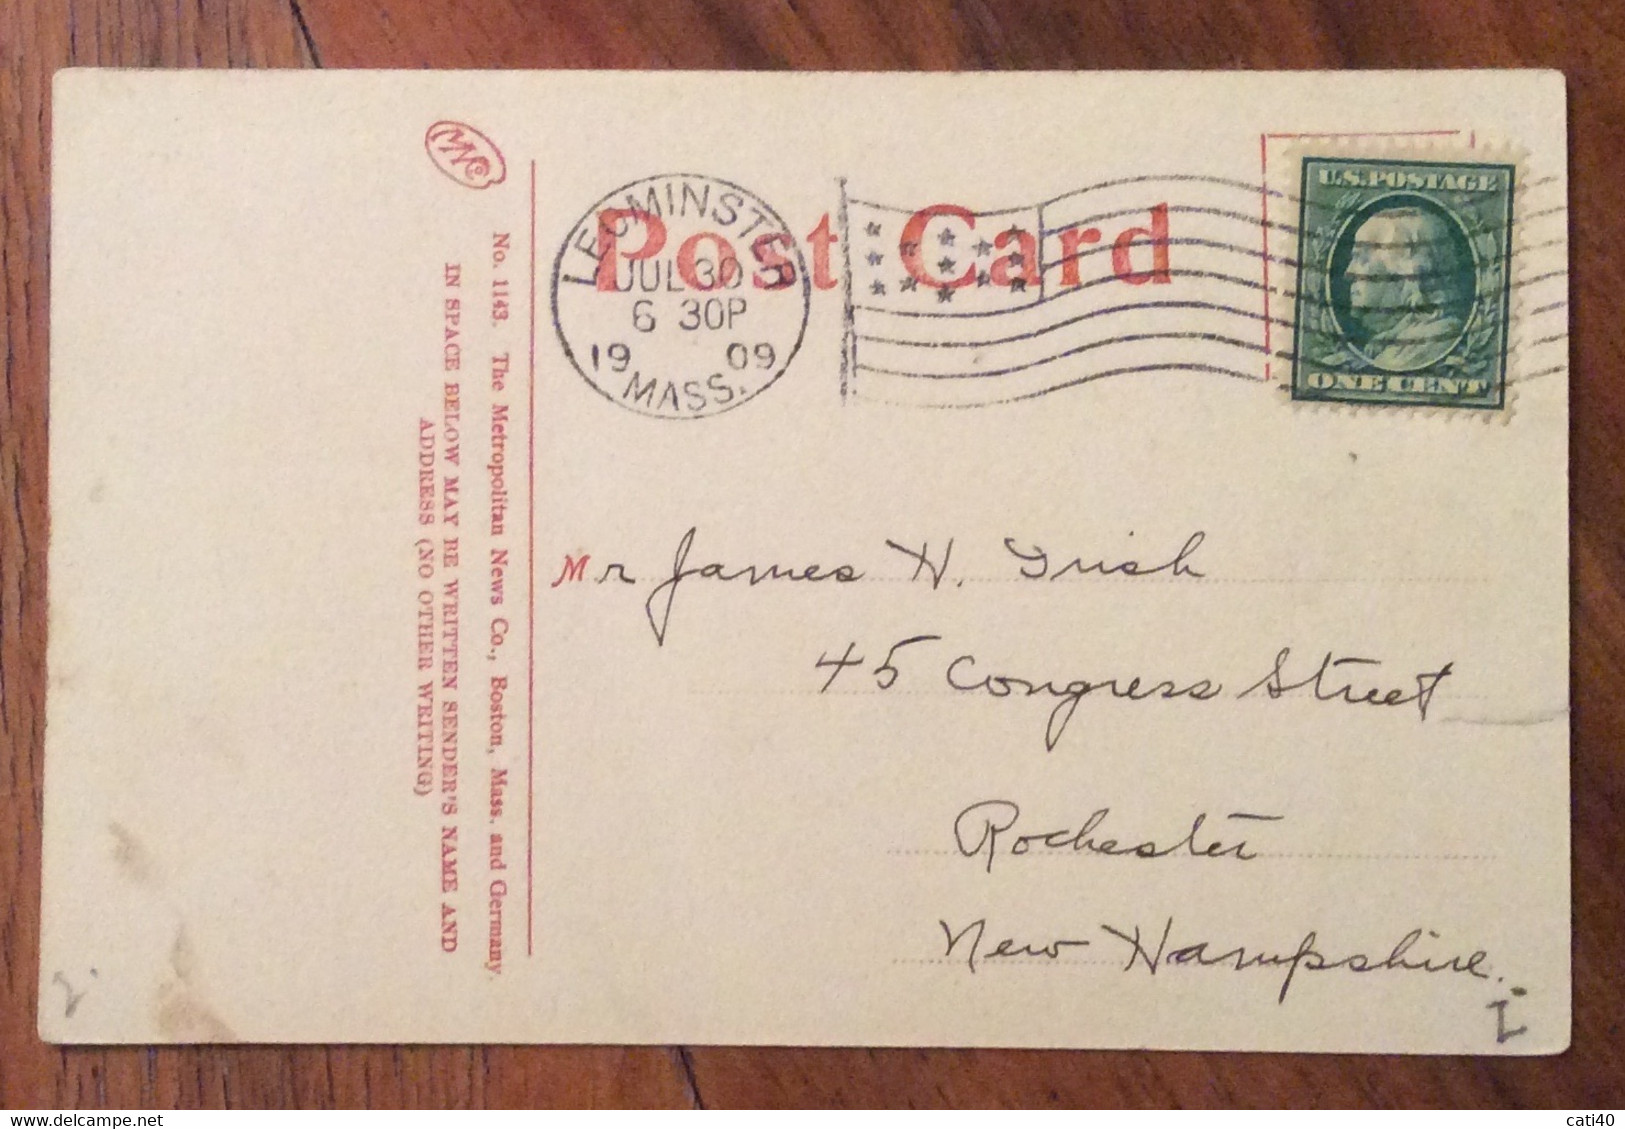 MNCo
No. 1143. The Metropolitan News Co., Boston, Mass. and Germany
IN SPACE BELOW MAY BE WRITTEN SENDER'S NAME AND
ADDRESS (NO OTHER WRITING)
Post Card
LEOMINSTER
JUL 30
6 30P
1909
MASS.
U.S. POSTAGE
ONE CENT
Mr James H. Irish
45 Congress Street
Rochester
New Hampshire.
2.
cati40